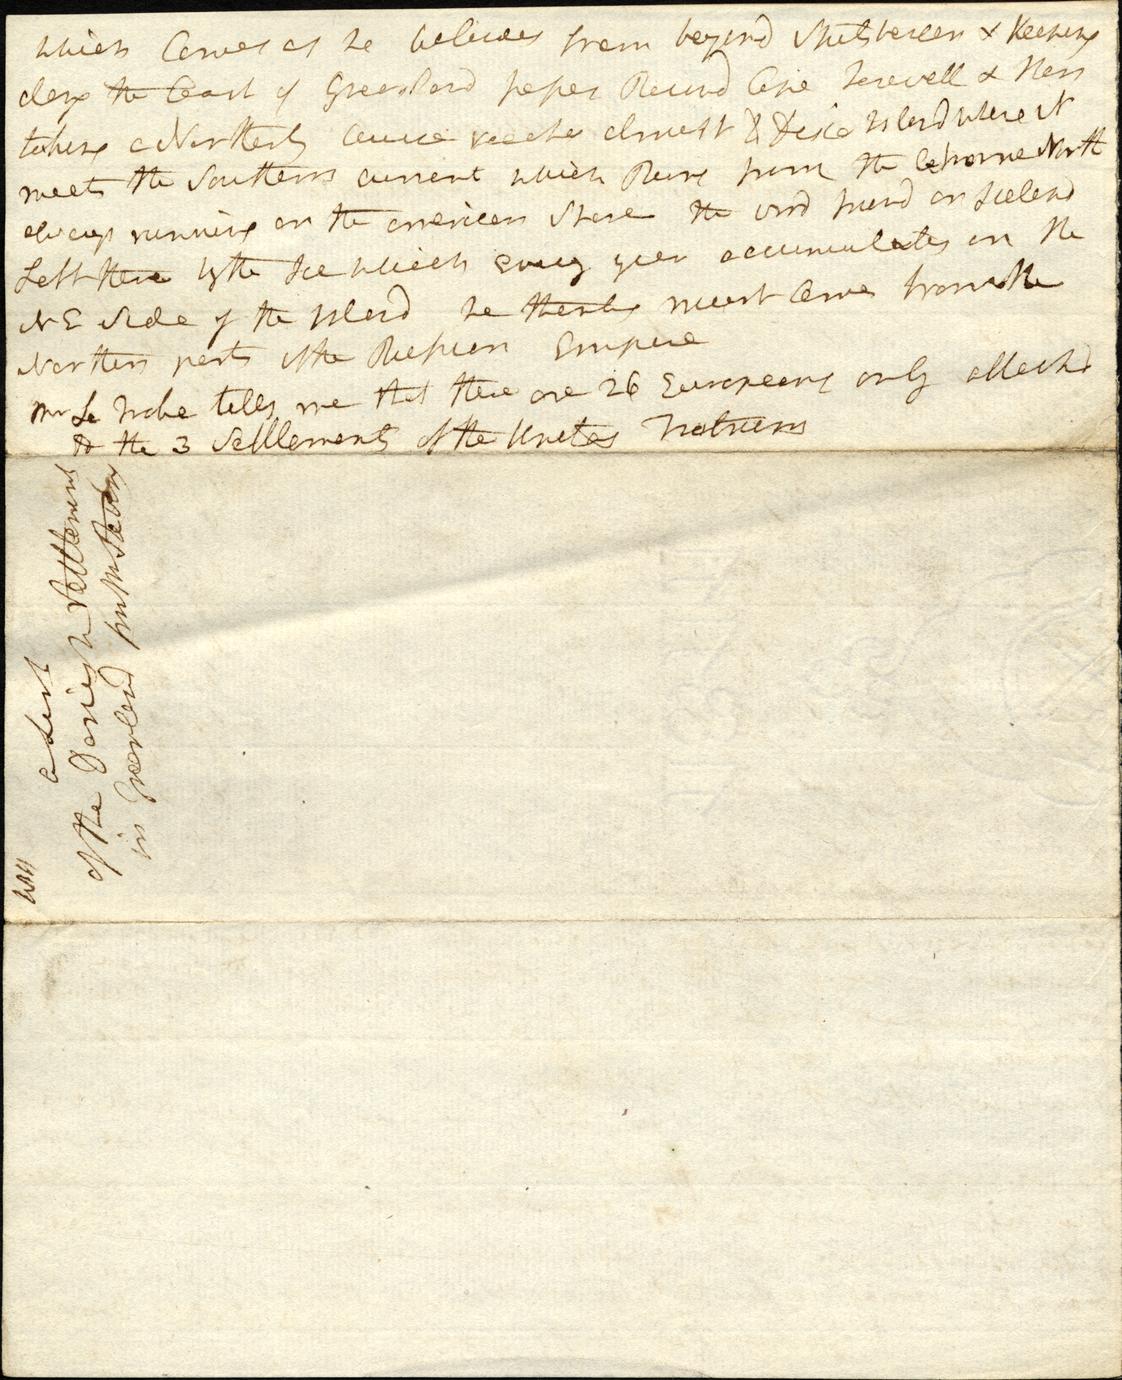 which Comes as he beleives from beyond Spitsbergen & Keeping
along the Coast of Greenland passes Round Cape Farewell & then
taking a Northerly Course reaches almost to Disco Island where it
meets the Southern current which Runs from the extreme North
always running on the american Shore the wood found on Iceland
Left there by the Ice which every year accumulates on the
NE Side of the Island he thinks must Come from the
Northern parts of the Russian Empire
Mr La Trobe tells me that there are 26 Europeans only attachd
to the 3 Settlements of the Unitas Fratrum
a List
of the Danish Settlement
in Greenland